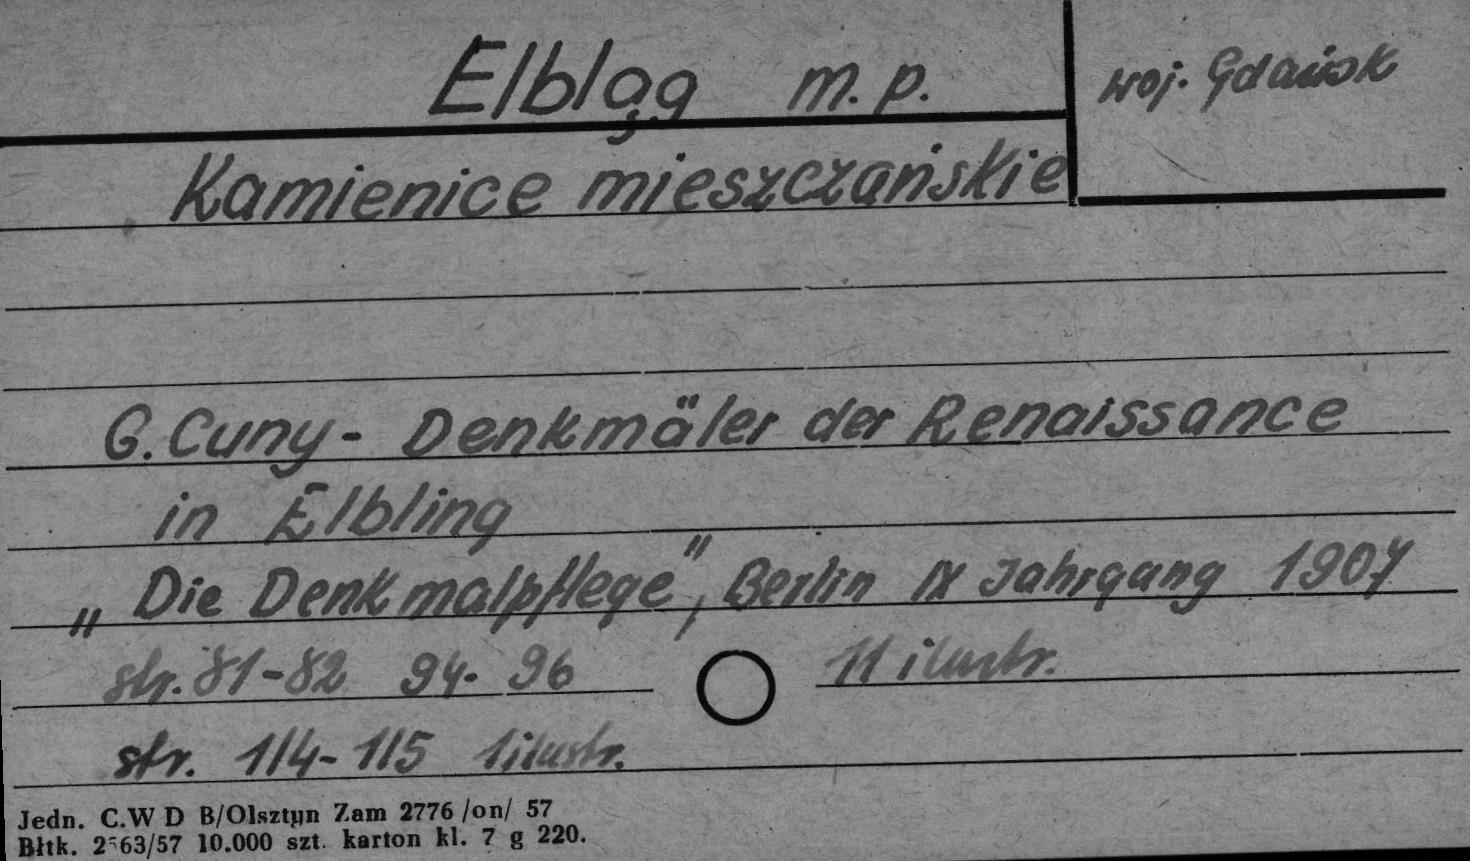 Elbląg m. p.
woj. Gdańsk
Kamienice mieszczańskie
G. Cuny - Denkmäler der Renaissance
in Elbling
„Die Denkmalpflege”, Berlin IX Jahrgang 1907
str. 81-82 94-96 11 ilustr.
str. 114-115 1 ilustr.
Jedn. C.W D B/Olsztyn Zam 2776 /on/ 57
Błtk. 2563/57 10.000 szt. karton kl. 7 g 220.